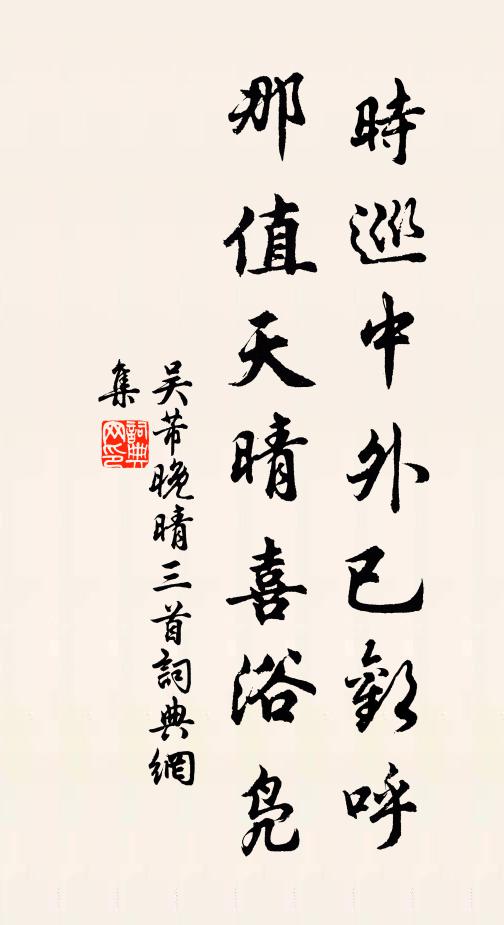 時巡中外已歡呼
那值天晴喜浴凫
吴芾晚晴三首詞典網
集
詞典网印